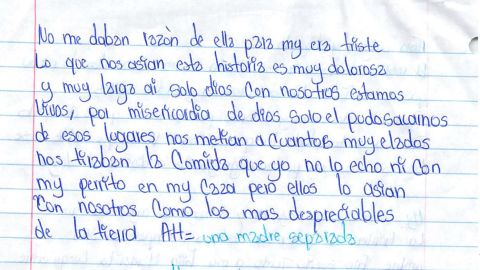 No me daban razòn de ella para my era triste
Lo que nos asian esta historia es muy dolorosa
y muy larga ai solo dios con nosotros estamos
Vivos, por misericordia de dios solo el pudo sacarnos
de esos lugares nos metian a cuantos muy elados
nos tiraban la Comida que yo no lo echo ni con
my perrito en my caza pero ellos lo asian
Con nosotros como los mas despreciables
de la tierra Att= una madre separada